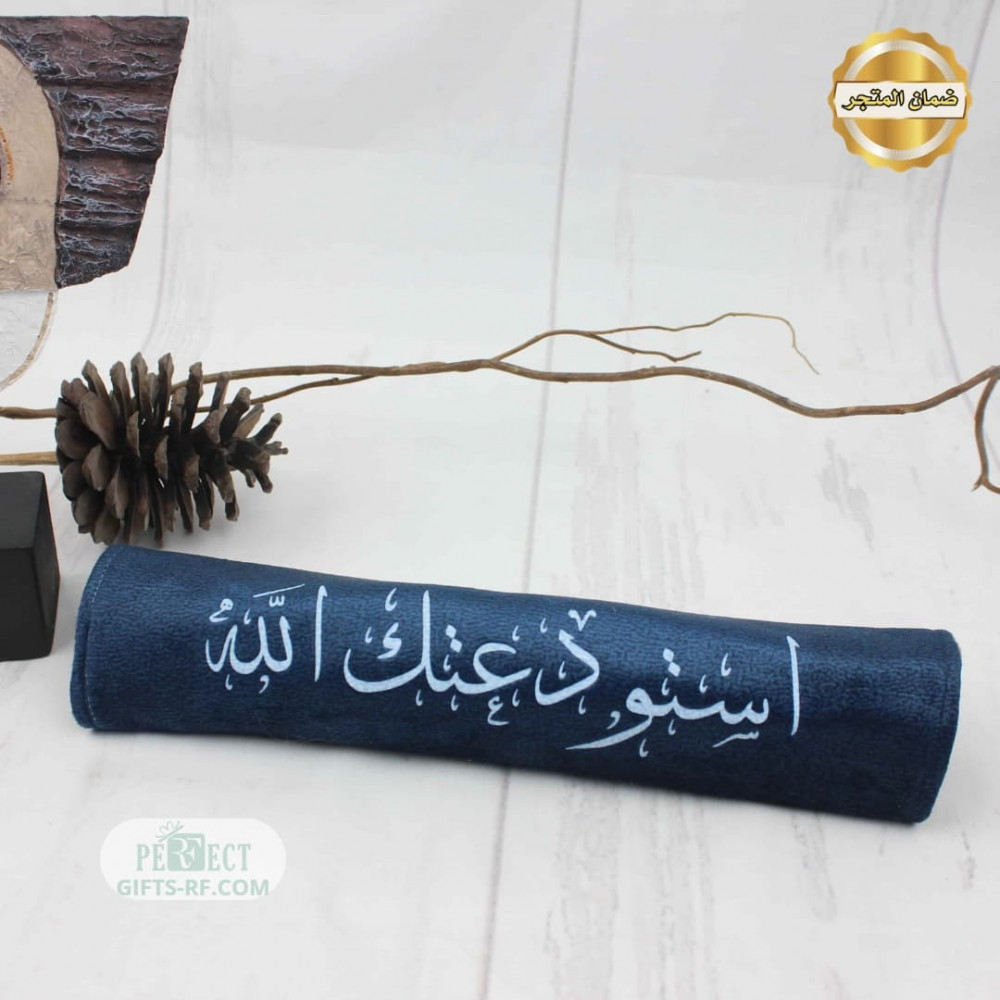 ضمان المتجر
استودعتك الله
PERFECT
GIFTS-RF.COM